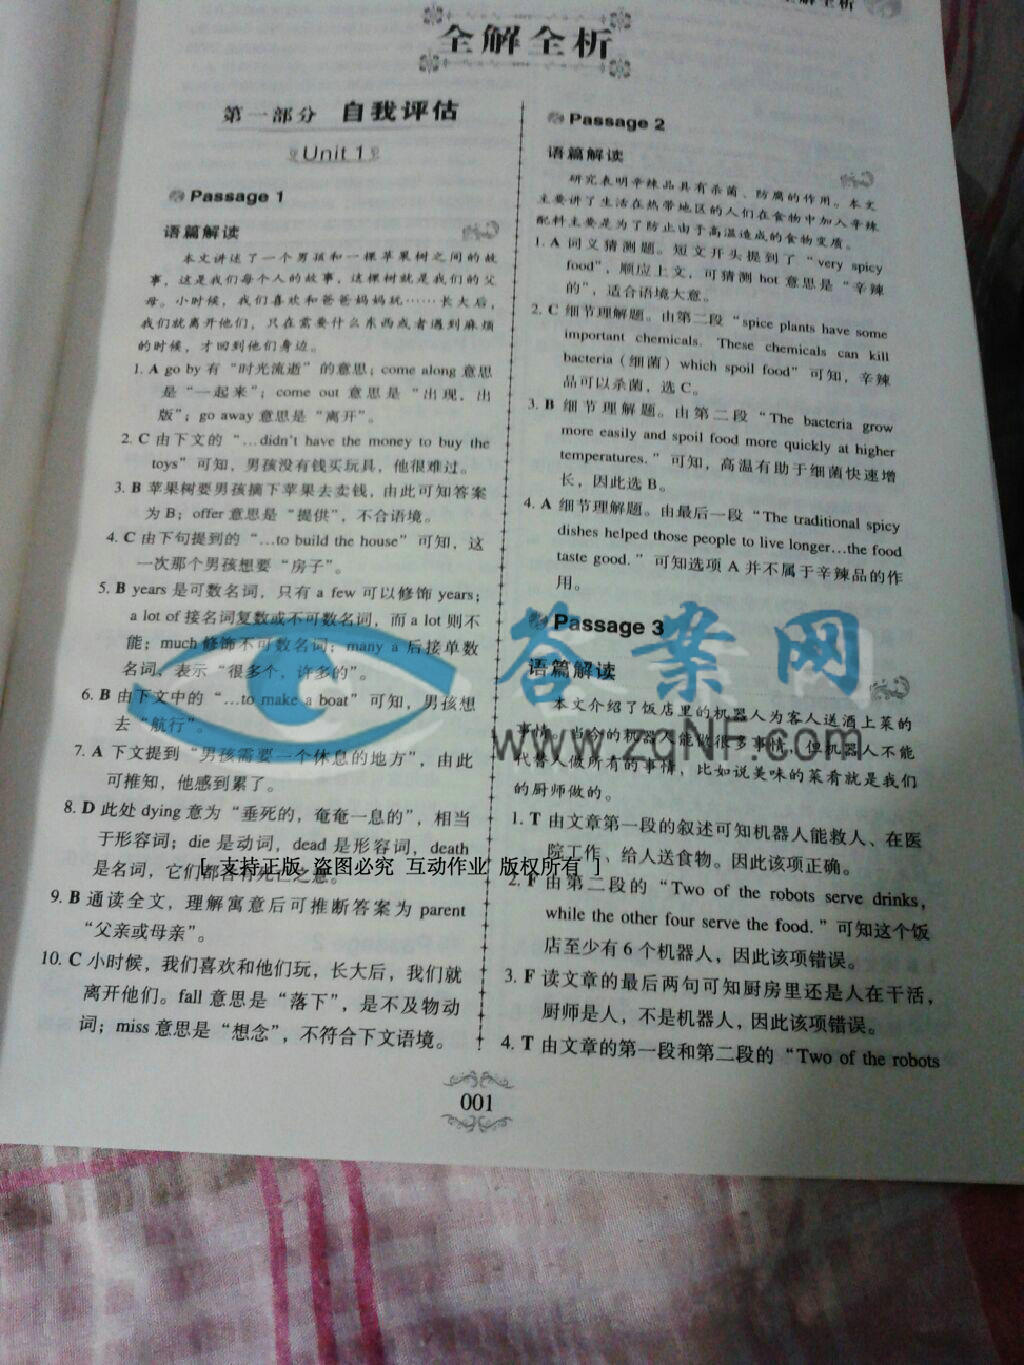 全解全析
全解全析
第一部分 自我评估
Unit 1
Passage 1
语篇解读
本文讲述了一个男孩和一棵苹果树之间的故
事，这是我们每个人的故事，这棵树就是我们的父
母。小时候，我们喜欢和爸爸妈妈玩……长大后，
我们就离开他们，只在需要什么东西或者遇到麻烦
的时候，才回到他们身边。
1. A go by 有“时光流逝”的意思；come along 意思
是“一起来”；come out 意思是“出现，出
版”；go away 意思是“离开”。
2. C 由下文的“…didn't have the money to buy the
toys”可知，男孩没有钱买玩具，他很难过。
3. B 苹果树要男孩摘下苹果去卖钱，由此可知答案
为 B；offer 意思是“提供”，不合语境。
4. C 由下句提到的“…to build the house”可知，这
一次那个男孩想要“房子”。
5. B years 是可数名词，只有 a few 可以修饰 years；
a lot of 接名词复数或不可数名词，而 a lot 则不
能；much 修饰不可数名词；many a 后接单数
名词，表示“很多个，许多的”。
6. B 由下文中的“…to make a boat”可知，男孩想
去“航行”。
7. A 下文提到“男孩需要一个休息的地方”，由此
可推知，他感到累了。
8. D 此处 dying 意为“垂死的，奄奄一息的”，相当
于形容词；die 是动词，dead 是形容词，death
是名词，它们都含有死亡之意。
9. B 通读全文，理解寓意后可推断答案为 parent
“父亲或母亲”。
10. C 小时候，我们喜欢和他们玩，长大后，我们就
离开他们。fall 意思是“落下”，是不及物动
词；miss 意思是“想念”，不符合下文语境。
Passage 2
语篇解读
研究表明辛辣品具有杀菌、防腐的作用。本文
主要讲了生活在热带地区的人们在食物中加入辛辣
配料主要是为了防止由于高温造成的食物变质。
1. A 同义猜测题。短文开头提到了“very spicy
food”，顺应上文，可猜测 hot 意思是“辛辣
的”，适合语境大意。
2. C 细节理解题。由第二段“spice plants have some
important chemicals. These chemicals can kill
bacteria（细菌）which spoil food”可知，辛辣
品可以杀菌，选 C。
3. B 细节理解题。由第二段“The bacteria grow
more easily and spoil food more quickly at higher
temperatures.”可知，高温有助于细菌快速增
长，因此选 B。
4. A 细节理解题。由最后一段“The traditional spicy
dishes helped those people to live longer…the food
taste good.”可知选项 A 并不属于辛辣品的作
用。
Passage 3
语篇解读
本文介绍了饭店里的机器人为客人送酒上菜的
事情。当今的机器人能做很多事情，但机器人不能
代替人做所有的事情，比如说美味的菜肴就是我们
的厨师做的。
1. T 由文章第一段的叙述可知机器人能救人、在医
院工作、给人送食物。因此该项正确。
2. F 由第二段的“Two of the robots serve drinks,
while the other four serve the food.”可知这个饭
店至少有 6 个机器人，因此该项错误。
3. F 读文章的最后两句可知厨房里还是人在干活，
厨师是人，不是机器人，因此该项错误。
4. T 由文章的第一段和第二段的“Two of the robots
001
答案网
www.zqNF.com
[ 支持正版 盗图必究 互动作业 版权所有 ]